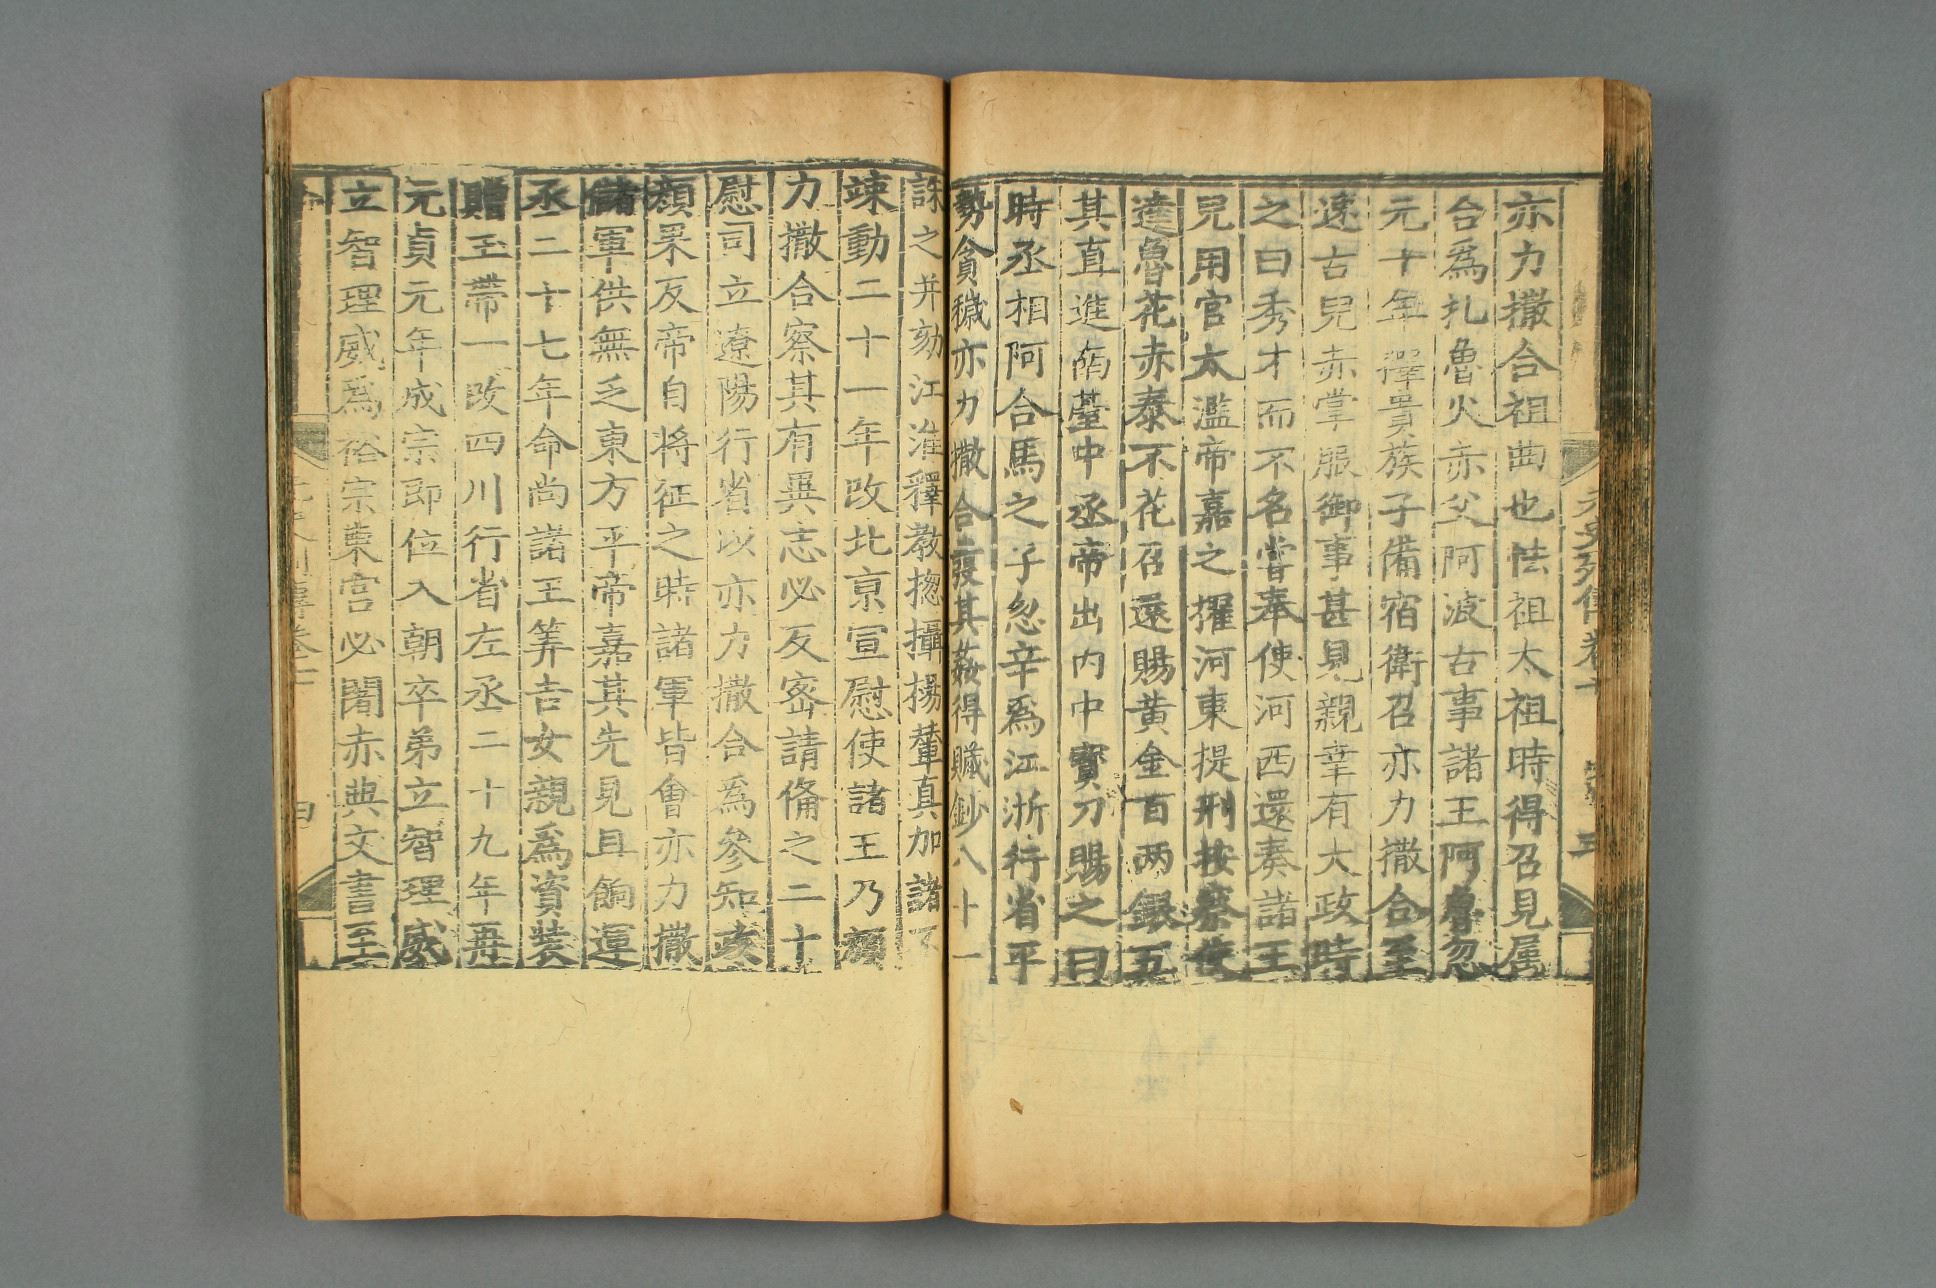 亦力撒合祖曲也怯祖太祖時得召見属
合爲扎魯火赤父阿波古事諸王阿魯忽
元十年擇貴族子備宿衛召亦力撒合至
速古兒赤掌服御事甚見親幸有大政時
之曰秀才而不名嘗奉使河西還奏諸王
兒用官太濫帝嘉之擢河東提刑按察使
達魯花赤泰不花召還賜黃金百两銀五
其直進南臺中丞帝出内中寳刀賜之曰
時丞相阿合馬之子忽辛爲江浙行省平
勢貪穢亦力撒合發其姦得贓鈔八十一
誅之并劾江淮釋教揔攝楊輦真加諸不
竦動二十一年改北京宣慰使諸王乃顔
力撒合察其有異志必反密請俻之二十
慰司立遼陽行省以亦力撒合爲參知政
顔果反帝自将征之時諸軍皆會亦力撒
儲軍供無乏東方平帝嘉其先見且餉運
丞二十七年命尚諸王筭吉女親爲資裝
贈玉帶一改四川行省左丞二十九年再
元貞元年成宗即位入朝卒弟立智理威
立智理威爲裕宗東宫必闍赤典文書至
元史列傳卷十
四